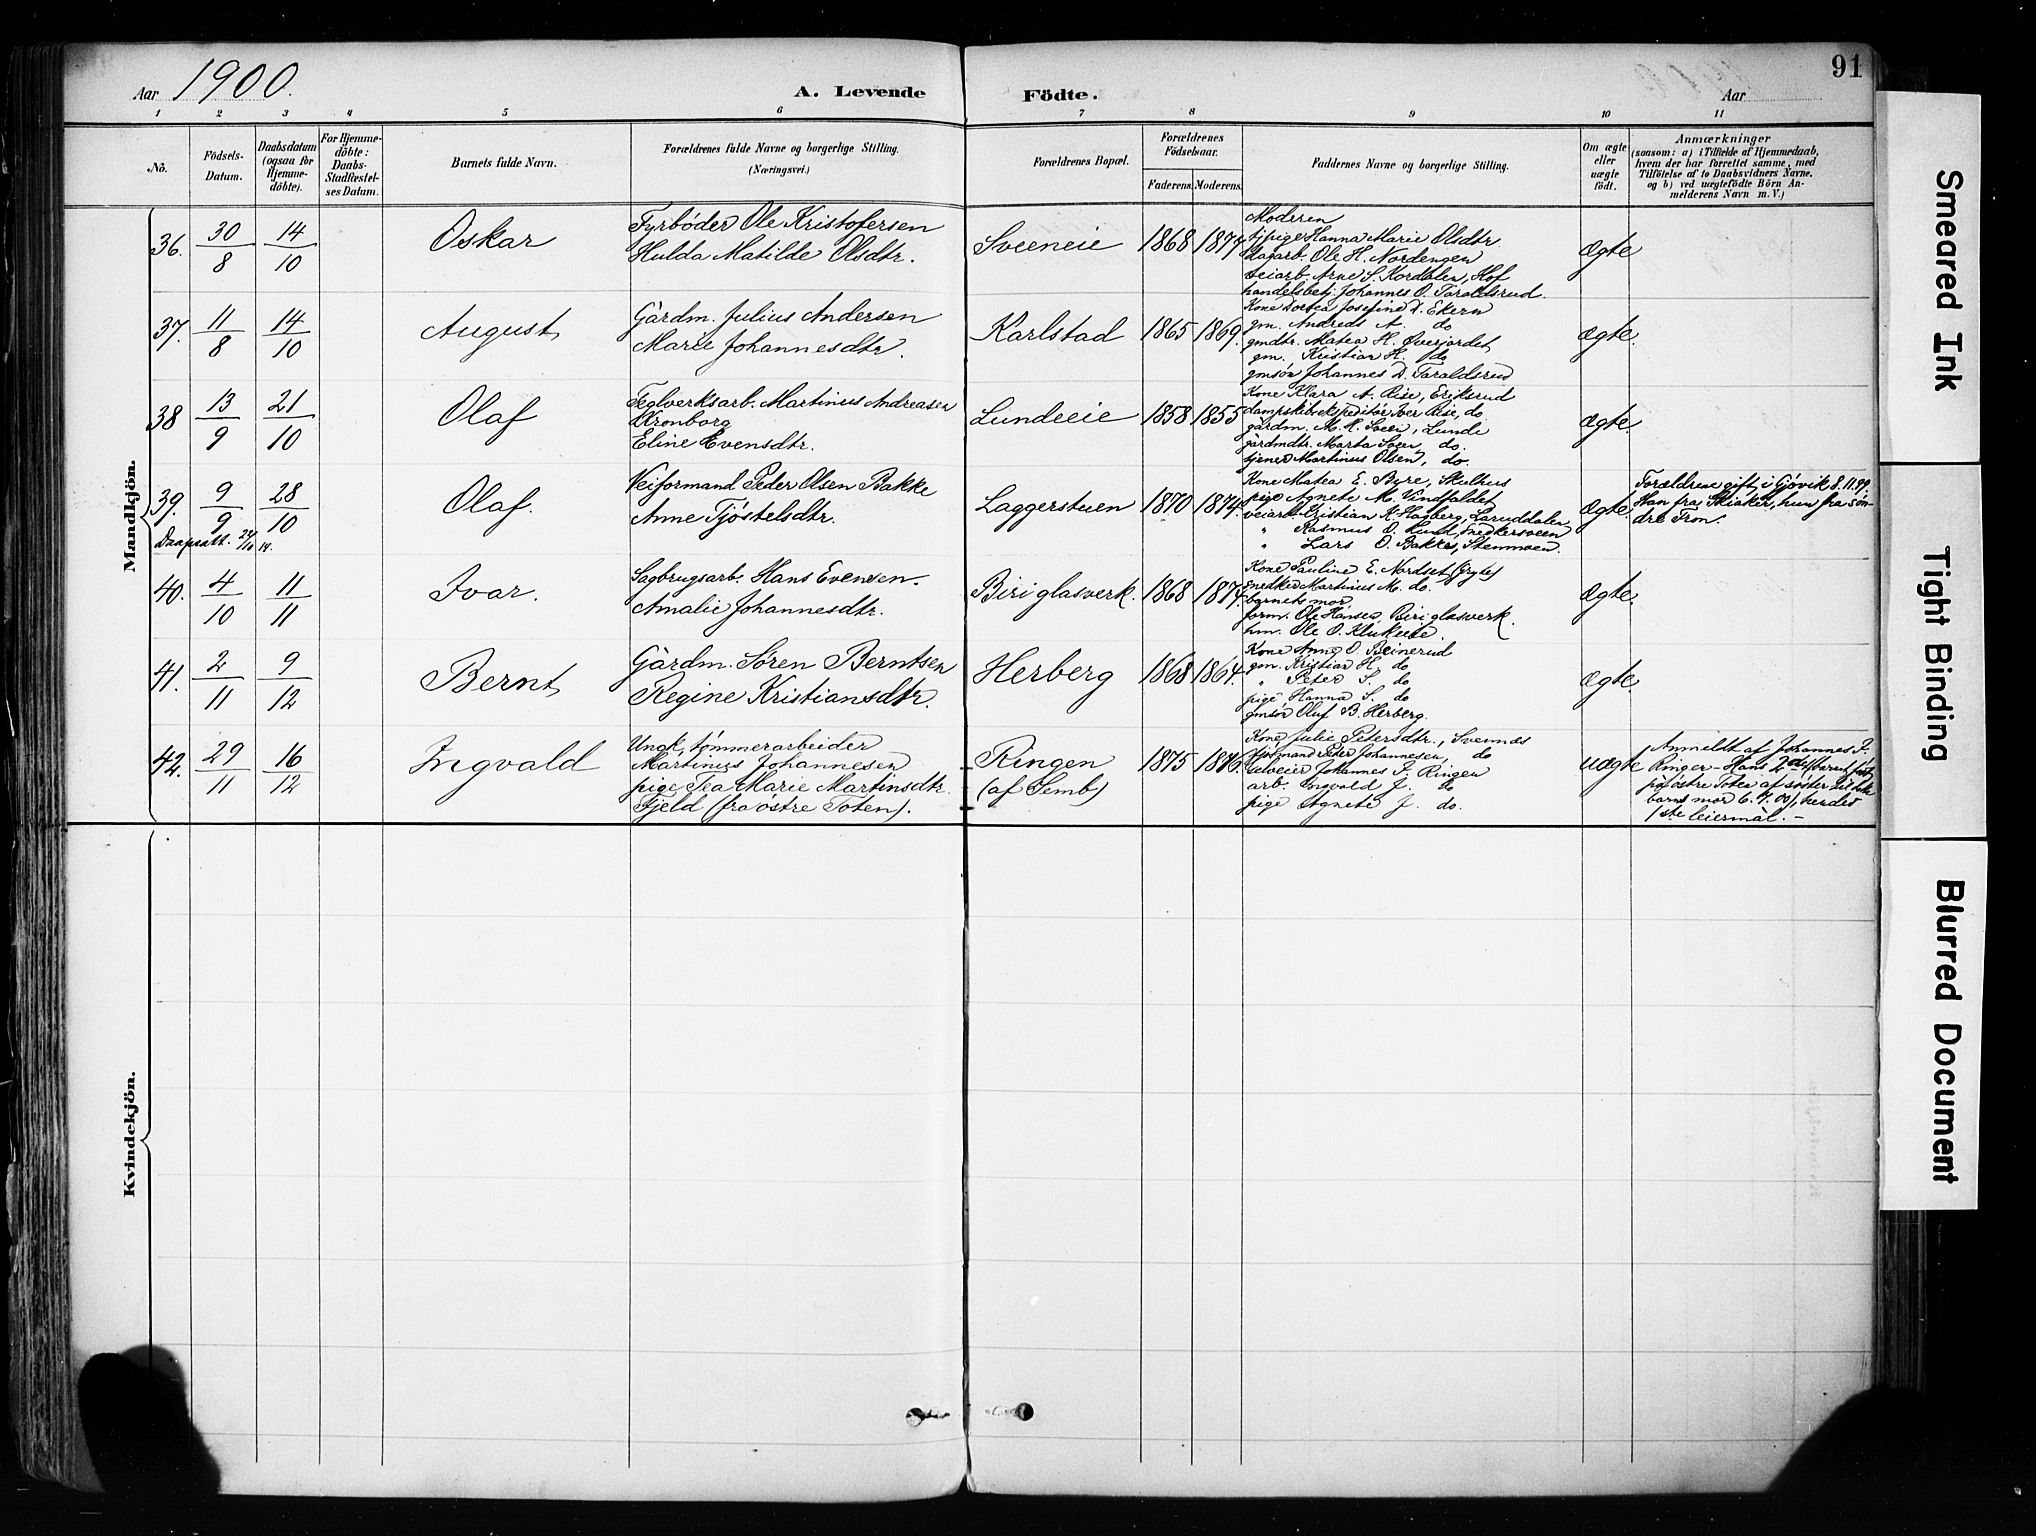 91
Aar 1900.
A. Levende Födte.
Aar
1 2 3 4 5 6 7 8 9 10 11
No.
Födsels-Datum.
Daabsdatum (ogsaa for Hjemme-döbte).
For Hjemme-döbte: Daabs-Stadfæstel-ses Datum.
Barnets fulde Navn.
Forældrenes fulde Navne og borgerlige Stilling.
(Næringsvei.)
Forældrenes Bopæl.
Forældrenes Födselsaar.
Faderens. Moderens.
Faddernes Navne og borgerlige Stilling.
Om ægte eller uægte födt.
Anmærkninger
(saasom: a) i Tilfælde af Hjemmedaab,
hvem der har forrettet samme, med
Tilföielse af to Daabsvidners Navne.
og b) ved uægtefödte Börn An-
melderens Navn m. V.)
Mandkjön.
36. 30/8 14/10 Oskar
Fyrbøder Ole Kristofersen
Hulda Matilde Olsdtr.
Sveeneie 1868 1874
Moderen
tjpige Hanna Marie Olsdtr.
dagarb. Ole H. Nordengen
veiarb. Arne S. Kordalen, Hof
handelsbetj. Johannes O. Taraldsrud.
ægte
37. 11/8 14/10 August
Gårdm. Julius Andersen
Marie Johannesdtr.
Karlstad 1865 1869.
Kone Dortea Josefine D. Ekern
gm. Andreas A. do
gmdtr. Matea H. Øverjordet
gm. Kristian H. do
gmsøn Johannes D. Taraldsrud
ægte.
38 13/9 21/10 Olaf
Teglverksarb. Martinus Andreasen
Kronborg
Eline Evensdtr.
Lundeeie 1858 1855
Kone Klara A. Rise, Eriksrud
dampskibsekspeditør Iver Rise, do
gårdm. M. M. Sveen, Lunde
gårdmdtr. Marta Sveen, do.
tjener Martinus Olsen, do.
ægte.
39. 9/9 28/10 Olaf.
Veiformand Peder Olsen Bakke
Anne Tjøstelsdtr.
Laggerstuen 1870 1874.
Kone Matea E. Byre, Skulhus
pige Agnete M. Vindfaldet
veiarb. Kristian K. Hagberg, Laruddalen
" Rasmus O. Lund, Snekkersveen
" Lars O. Bakke, Stenmoen.
ægte.
Forældrene gift i Gjøvik 8.11.99.
Han fra Skiaker, hun fra søn-
dre Fron.
40. 4/10 11/11 Ivar.
Sagbrugsarb. Hans Evensen.
Amalie Johannesdtr.
Biri glasverk. 1868 1874.
Kone Pauline E. Nordset (Gryte)
snedker Martinus M. do.
barnets mor
form. Ole Hansen, Biri glasverk.
hm. Ole O. Klukeeie.
ægte.
41. 2/11 9/12 Bernt
Gårdm. Søren Berntsen
Regine Kristiansdtr.
Herberg 1868 1864.
Kone Anne O. Beinerud
gm. Kristian H. do
" Peter S. do
pige Hanna S. do
gmsøn Oluf B. Herberg.
ægte.
42. 29/11 16/12 Ingvald
Ungk. tømmerarbeider
Martinus Johannesen
pige Tea Marie Martinsdtr.
Fjeld (fra østre Toten).
Ringen
(af Semb)
1875 1876.
Kone Julie Petersdtr., Svennæs
Peter Johannesen do
Johannes J. Ringen
arb. Ingvald J. do
pige Agnete J. do.
uægte
Anmeldt af Johannes J.
Ringen – Hans 2det barn (født
på østre Toten af søster til dette
barns mor 6.7.00), hendes
1ste leiermål. –
Kvindekjön.
Smeared Ink
Tight Binding
Blurred Document